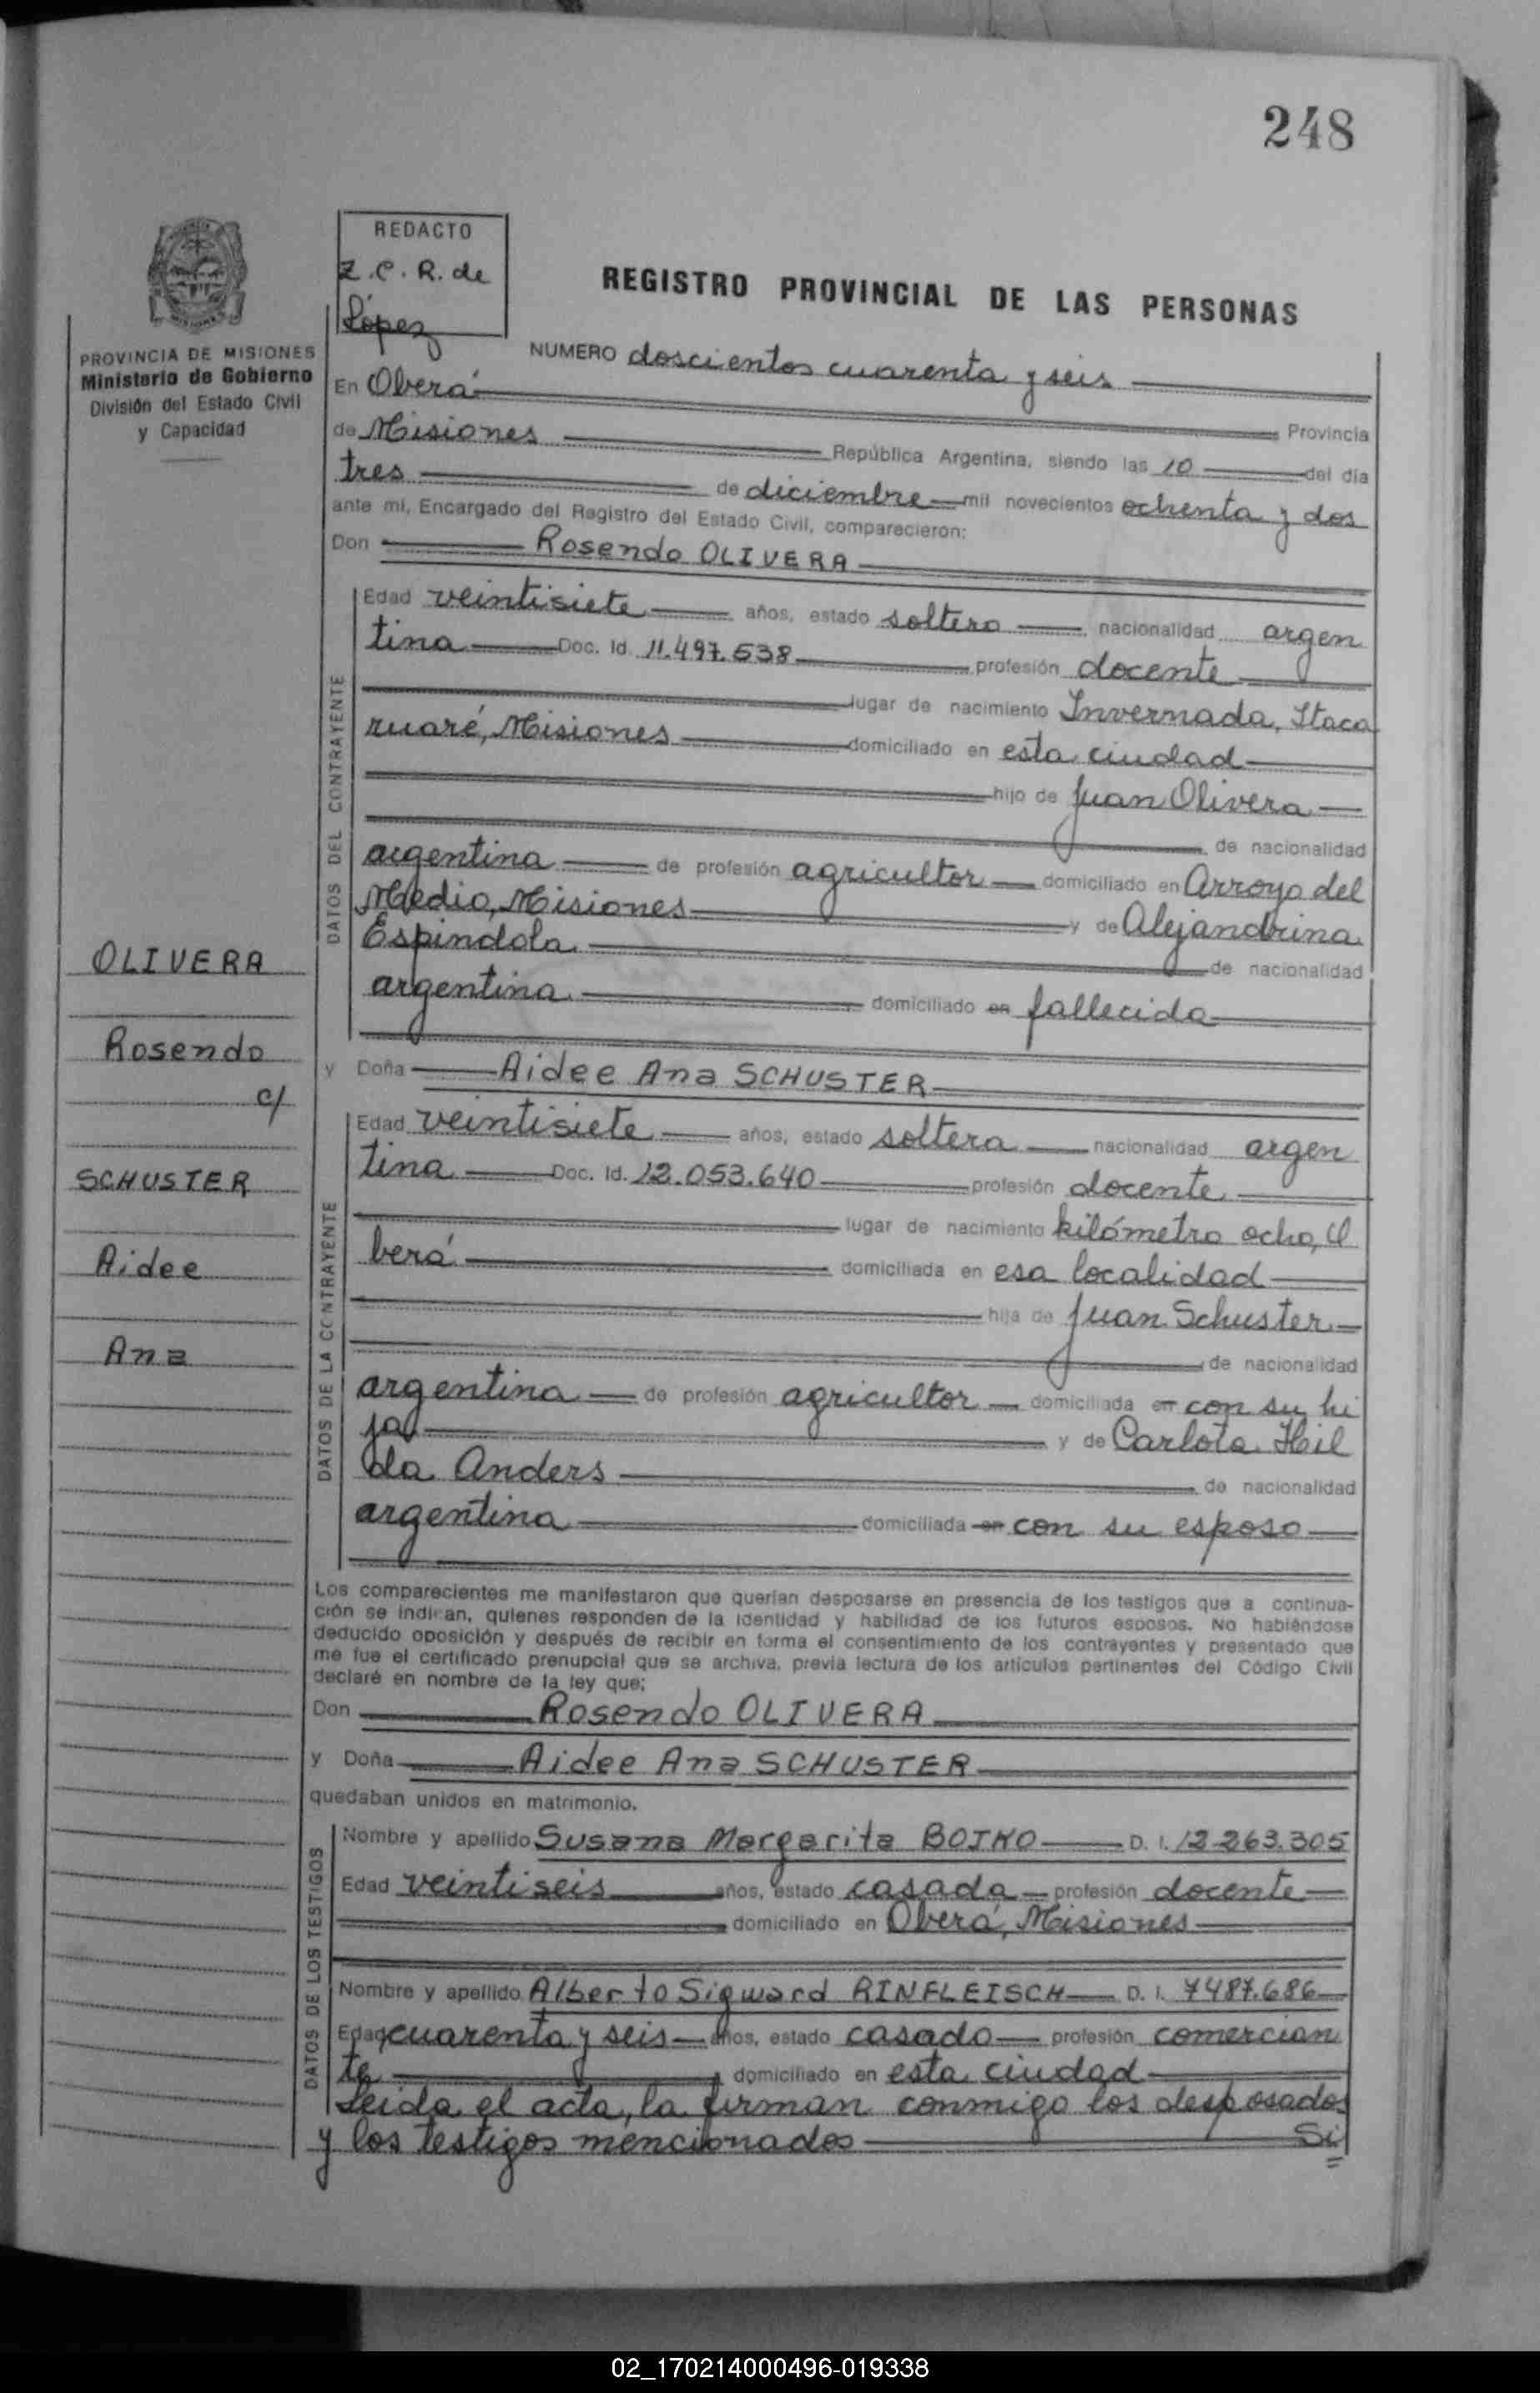 248
REDACTO
Z.C.R. de
López
REGISTRO PROVINCIAL DE LAS PERSONAS
PROVINCIA DE MISIONES
Ministerio de Gobierno
División del Estado Civil
y Capacidad
NUMERO doscientos cuarenta y seis
En Oberá Provincia
de Misiones República Argentina, siendo las 10 del día
tres de diciembre mil novecientos ochenta y dos
ante mí, Encargado del Registro del Estado Civil, comparecieron:
Don Rosendo OLIVERA
DATOS DEL CONTRAYENTE
Edad veintisiete años, estado soltero nacionalidad argen
tina Doc. Id. 11.497.538 profesión docente
lugar de nacimiento Invernada, Itaca
ruaré, Misiones domiciliado en esta ciudad
hijo de Juan Olivera
de nacionalidad
argentina de profesión agricultor domiciliado en Arroyo del
Medio, Misiones y de Alejandrina
Espindola de nacionalidad
argentina domiciliado en fallecida
OLIVERA
Rosendo
c/
SCHUSTER
Aidee
Ana
y Doña Aidee Ana SCHUSTER
DATOS DE LA CONTRAYENTE
Edad veintisiete años, estado soltera nacionalidad argen
tina Doc. Id. 12.053.640 profesión docente
lugar de nacimiento kilómetro ocho, O
berá domiciliada en esa localidad
hija de Juan Schuster
de nacionalidad
argentina de profesión agricultor domiciliada en con su hi
ja y de Carlota Hil
da Anders de nacionalidad
argentina domiciliada en con su esposo
Los comparecientes me manifestaron que querían desposarse en presencia de los testigos que a continua-
ción se indican, quienes responden de la identidad y habilidad de los futuros esposos. No habiéndose
deducido oposición y después de recibir en forma el consentimiento de los contrayentes y presentado que
me fue el certificado prenupcial que se archiva, previa lectura de los artículos pertinentes del Código Civil
declaré en nombre de la ley que:
Don Rosendo OLIVERA
y Doña Aidee Ana SCHUSTER
quedaban unidos en matrimonio.
DATOS DE LOS TESTIGOS
Nombre y apellido Susana Margarita BOIKO D. I. 12.263.305
Edad veintiseis años, estado casada profesión docente
domiciliado en Oberá, Misiones
Nombre y apellido Alberto Sigward RINFLEISCH D. I. 7487.686
Edad cuarenta y seis años, estado casado profesión comercian
te domiciliado en esta ciudad
Leida el acta, la firman conmigo los desposados
y los testigos mencionados Si
02_170214000496-019338